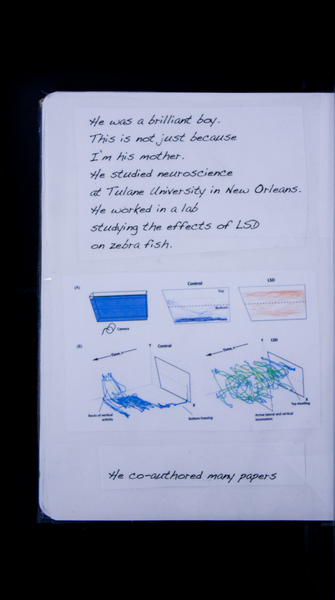 He was a brilliant boy.
This is not just because
I'm his mother.
He studied neuroscience
at Tulane University in New Orleans.
He worked in a lab
studying the effects of LSD
on zebra fish.
(A)
Control
LSD
Top
Bottom
Camera
(B)
Y Control
Y LSD
X
Bottom freezing
Top dwelling
Active lateral and vertical
He co-authored many papers